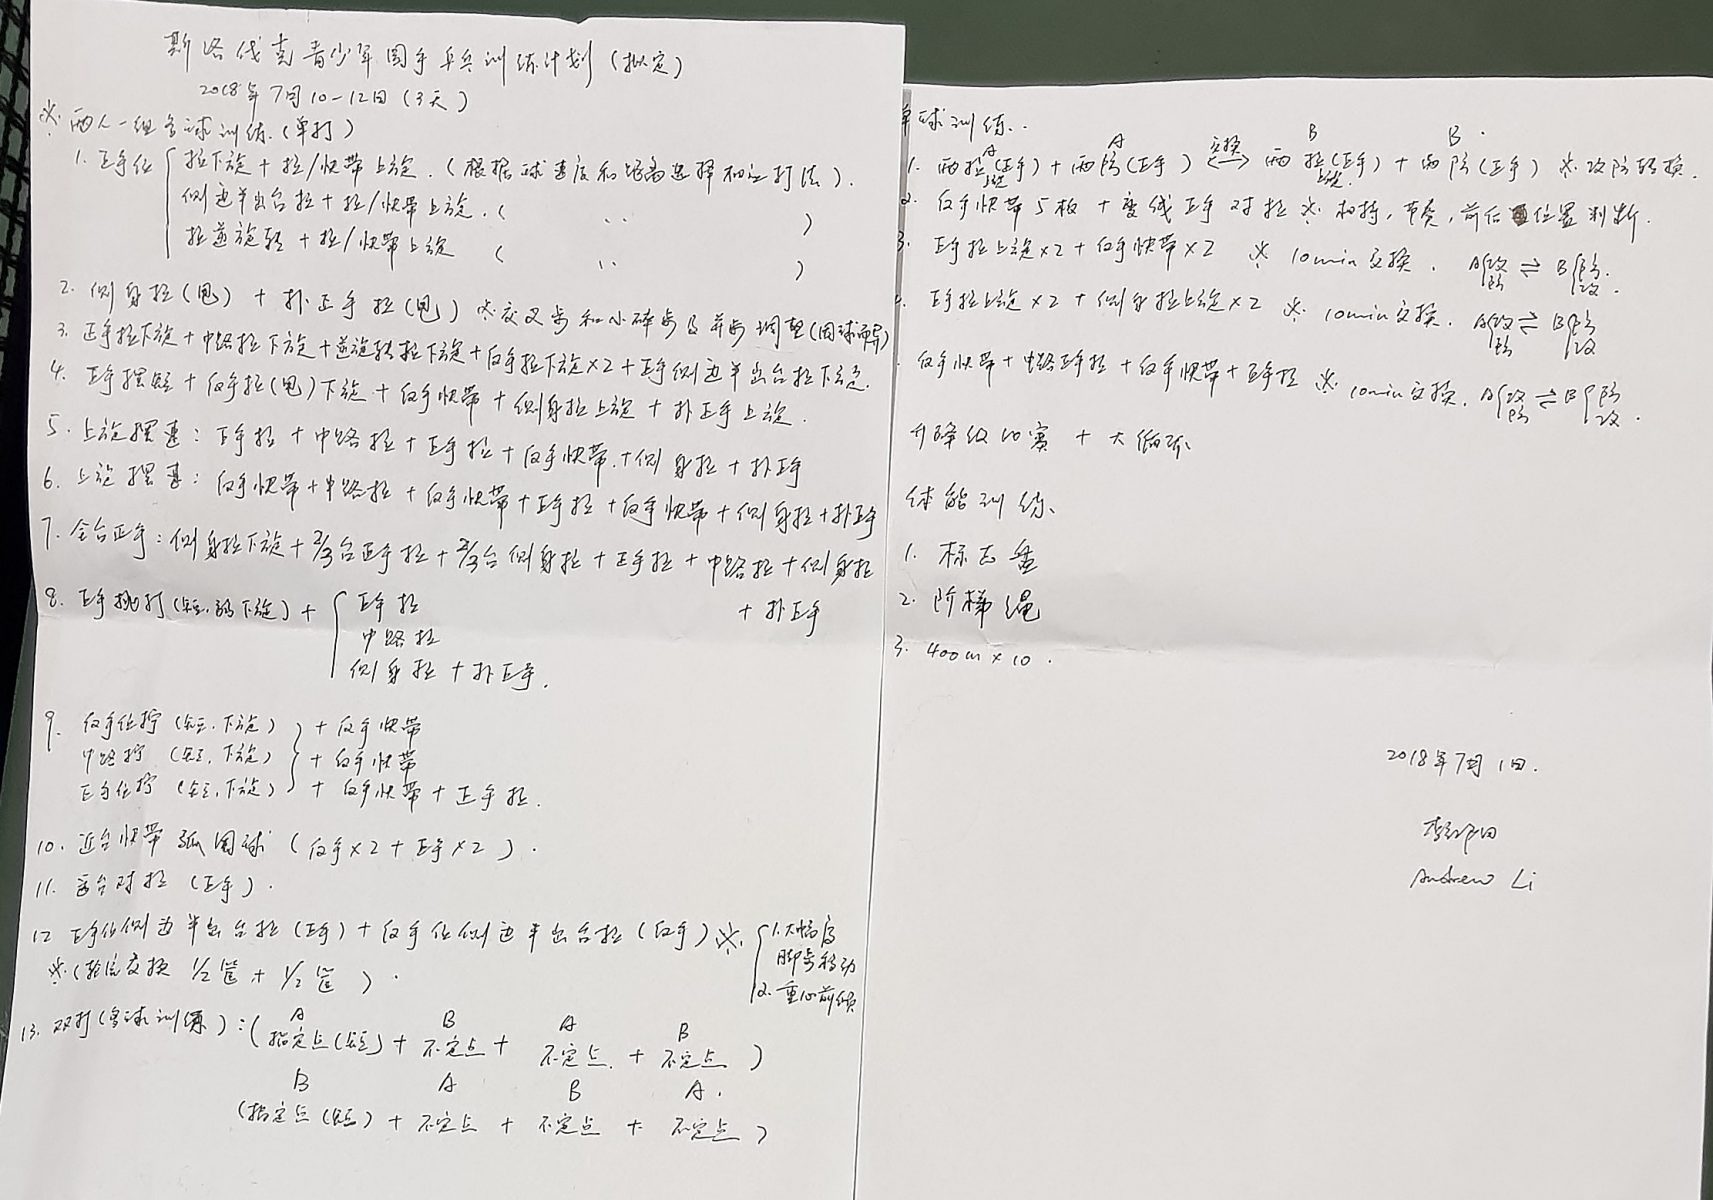 斯洛伐克青少年国手乒乓训练计划(拟定)
2018年7月10-12日(3天)
※.两人一组多球训练.(单打)
1.正手位 拉下旋+拉/快带上旋.(根据球速度和 选择相应打法).
侧边半出台拉+拉/快带上旋.( .. )
拉逆旋转+拉/快带上旋 ( .. )
2.侧身拉(甩)+扑正手拉(甩)※交叉步和小碎步及并步调整(因球而异)
3.正手拉下旋+中路拉下旋+逆旋转拉下旋+反手拉下旋×2+正手侧边半出台拉下旋.
4.正手摆短+反手拉(甩)下旋+反手快带+侧身拉上旋+扑正手上旋.
5.上旋摆速:正手拉+中路拉+正手拉+反手快带.+侧身拉+扑正手
6.上旋摆速:反手快带+中路拉+反手快带+正手拉+反手快带+侧身拉+扑正手
7.全台正手:侧身拉下旋+2/3台正手拉+2/3台侧身拉+正手拉+中路拉+侧身拉
+扑正手
8.正手挑打(短.弱下旋)+ 正手拉
中路拉
侧身拉+扑正手.
9.反手位拧(短.下旋) +反手快带
中路拧(短.下旋) +反手快带
正手位拧(短.下旋) +反手快带+正手拉.
10.近台快带弧圈球(反手×2+正手×2).
11. 台对拉(正手).
12 正手位侧边半出台拉(正手)+反手位侧边半出台拉(反手)※. 1.大幅度
脚步移动
2.重心前倾
※(轮流交换 1/2筐+1/2筐).
13.双打(多球训练):( A B A B
指定点(短)+不定点+不定点.+不定点)
B A B A.
(指定点(短)+不定点+不定点+不定点)
单球训练..
A A 交换 B B.
1.两拉(正手)+两防(正手)⟷两拉(正手)+两防(正手)※攻防转换.
上旋 上旋.
2.反手快带5板+变线正手对拉※相持,节奏,前后位置判断.
3.正手拉上旋×2+反手快带×2 ※10min交换. A{攻防⇌B{防攻.
4.正手拉上旋×2+侧身拉上旋×2 ※10min交换. A{攻防⇌B{防攻
反手快带+中路正手拉+反手快带+正手拉※10min交换. A{攻防⇌B{防攻.
升降级比赛+大循环
体能训练、
1.标志盘
2.阶梯绳
3.400m×10.
2018年7月1日.
Andrew Li